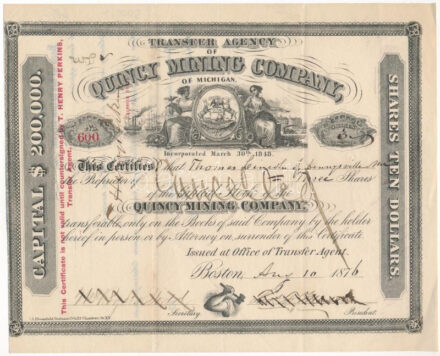 TRANSFER AGENCY
OF
QUINCY MINING COMPANY,
OF MICHIGAN.
600
Incorporated March 30th, 1848.
CAPITAL $ 200,000.
This Certificate is not valid until countersigned by T. HENRY PERKINS,
Transfer Agent.
SHARES TEN DOLLARS.
This Certifies that Thomas
the Proprietor of Shares
in the Capital Stock of the
QUINCY MINING COMPANY,
transferable only on the Books of said Company by the holder
thereof in person or by Attorney on surrender of this Certificate.
Issued at Office of Transfer Agent.
Boston, Aug 10 1876
Secretary
President.